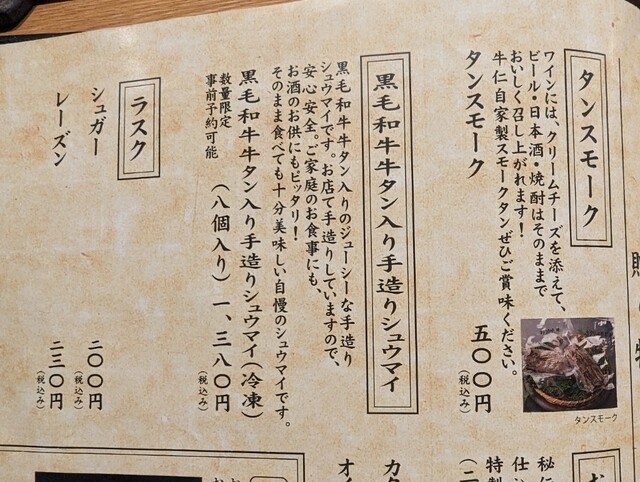 タンスモーク
ワインには、クリームチーズを添えて、
ビール・日本酒・焼酎はそのままで
おいしく召し上がれます！
牛仁自家製スモークタンぜひご賞味ください。
タンスモーク
五〇〇円
(税込み)
タンスモーク
黒毛和牛牛タン入り手造りシュウマイ
黒毛和牛牛タン入りのジューシーな手造り
シュウマイです。お店で手造りしていますので、
安心安全。ご家庭のお食事にも、
お酒のお供にもピッタリ！
そのまま食べても十分美味しい自慢のシュウマイです。
黒毛和牛牛タン入り手造りシュウマイ(冷凍)
数量限定
事前予約可能
(八個入り)一、三八〇円
(税込み)
ラスク
シュガー
二〇〇円
(税込み)
レーズン
二三〇円
(税込み)
秘伝
仕
特製
(二
カタ
オイ